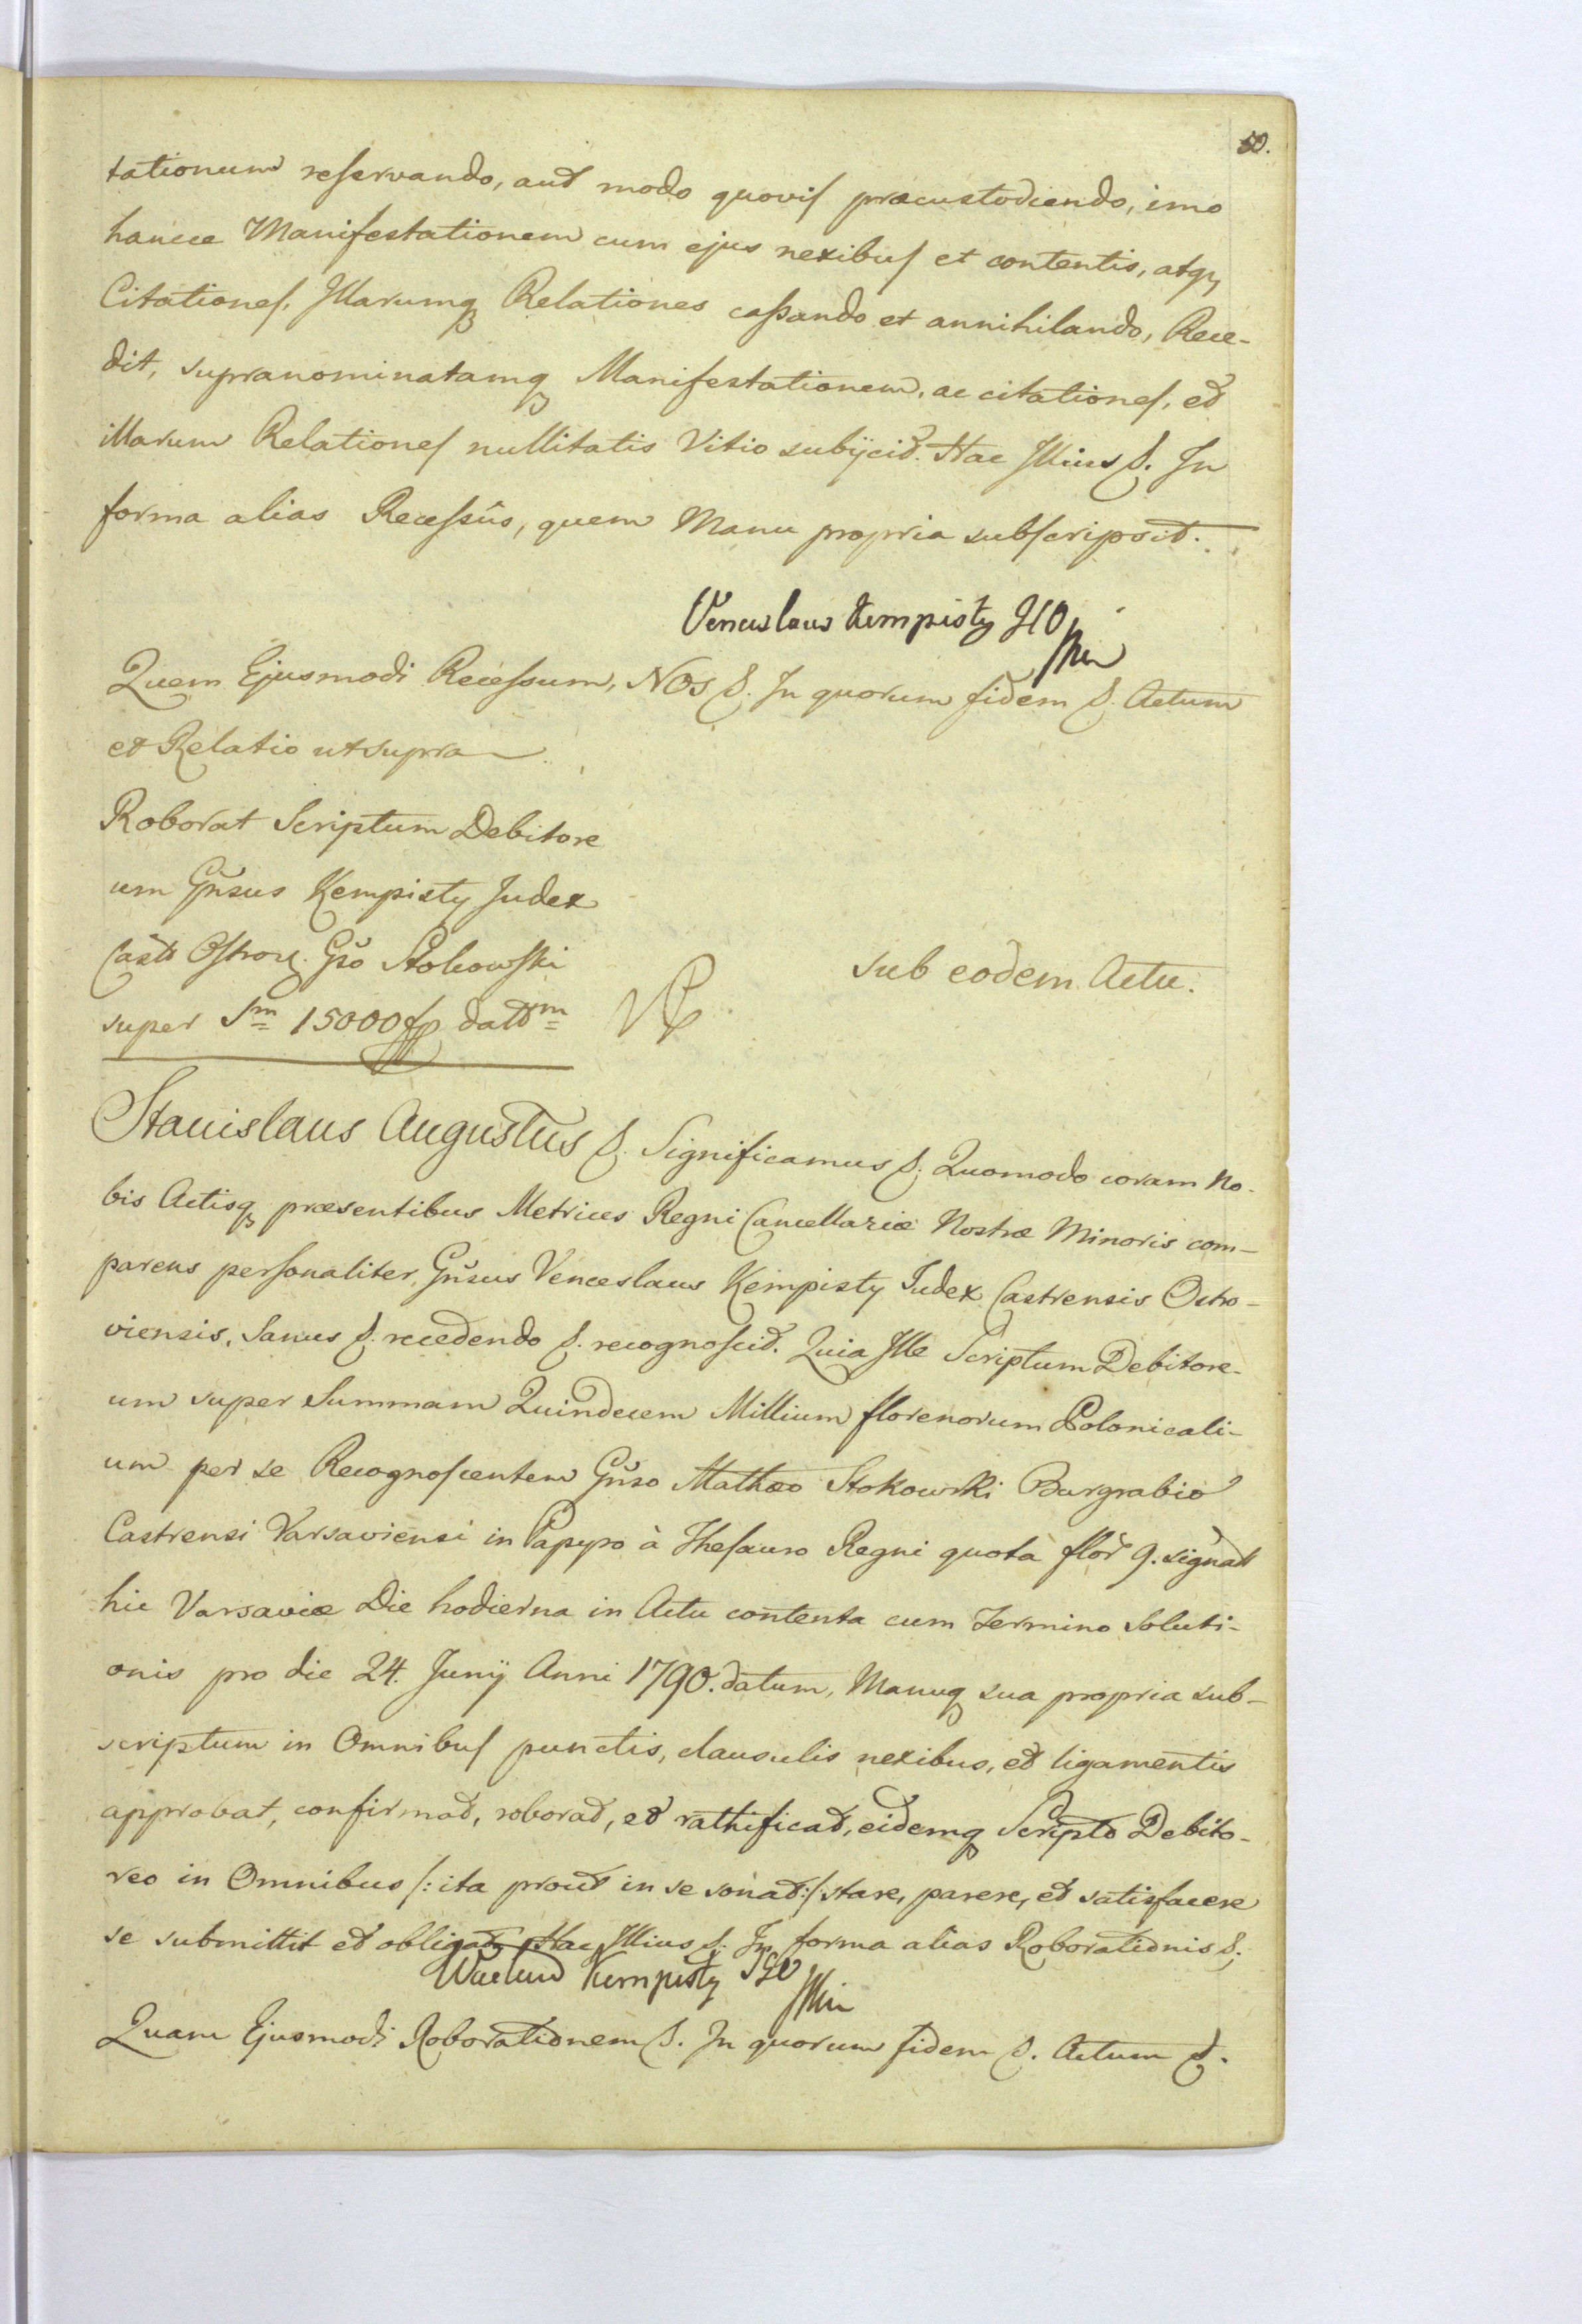 50.
tationum reservando, aut modo quovis præcustodiendo, imo
hancce Manifestationem cum ejus nexibus et contentis, atq3
Citationes, Illarumq3 Relationes cassando et annihilando, Rece-
dit, supranominatamq3 Manifestationem, ac citationes, et
illarum Relationes nullitatis Vitio subÿcit. Hac Illius &. In
forma alias Recessûs, quem Manu propria subscripsit.
Venceslaus Kempisty
Quem Ejusmodi Recessum, Nos &. In quorum fidem &. Actum
et Relatio ut supra
Roborat Scriptum Debitore
um Gñsus Kempisty Judex
Castr Ostrov. Gso Stokowski
super Sm 15000 fp dattm
sub eodem Actu.
Stanislaus Augustus &. Significamus &. Quomodo coram No-
bis Actisq3 præsentibus Metrices Regni Cancellariæ Nostræ Minoris com-
parens personaliter Gñsus Venceslaus Kempisty Judex Castrensis Ostro-
viensis, Sanus &. recedendo &. recognoscit. Quia Ille Scriptum Debitore-
um super Summam Quindecem Millium florenorum Polonicali-
um per se Recognoscentem Gñso Mathæo Stokowski Burgrabio
Castrensi Varsaviensi in Papyro à Thesauro Regni quota flor 9. signatt
hic Varsaviæ Die hodierna in Actu contenta cum Termino Soluti-
onis pro die 24. Junÿ Anni 1790. datum, Manuq3 sua propria sub-
scriptum in Omnibus punctis, clausulis nexibus, et ligamentis
approbat, confirmat, roborat, et rathificat, eidemq3 Scripto Debito-
reo in Omnibus /: ita prout in se sonat :/ stare, parere, et satisfacere
se submittit et obligat, Hac Illius &. In forma alias Roborationis &.
Kempisty
Quam Ejusmodi Roborationem &. In quorum fidem &. Actum &.